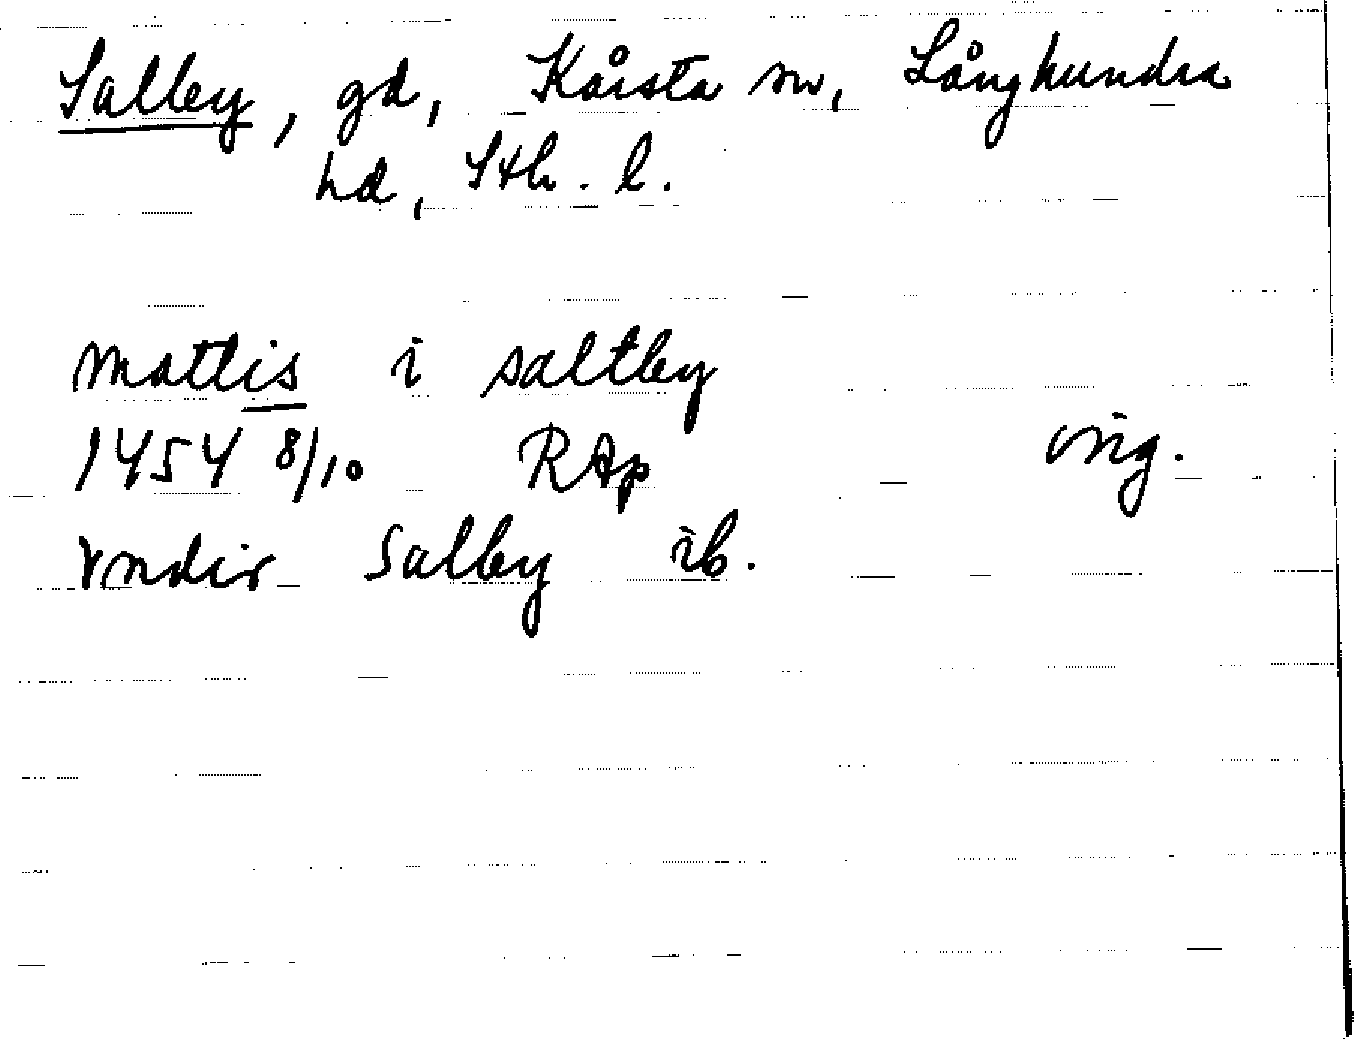 Salby, gd, Kårsta sn, Långhundra
hd, Sth. l.
mattis i saltby
1454 8/10 RAp orig.
vndir Salby ib.